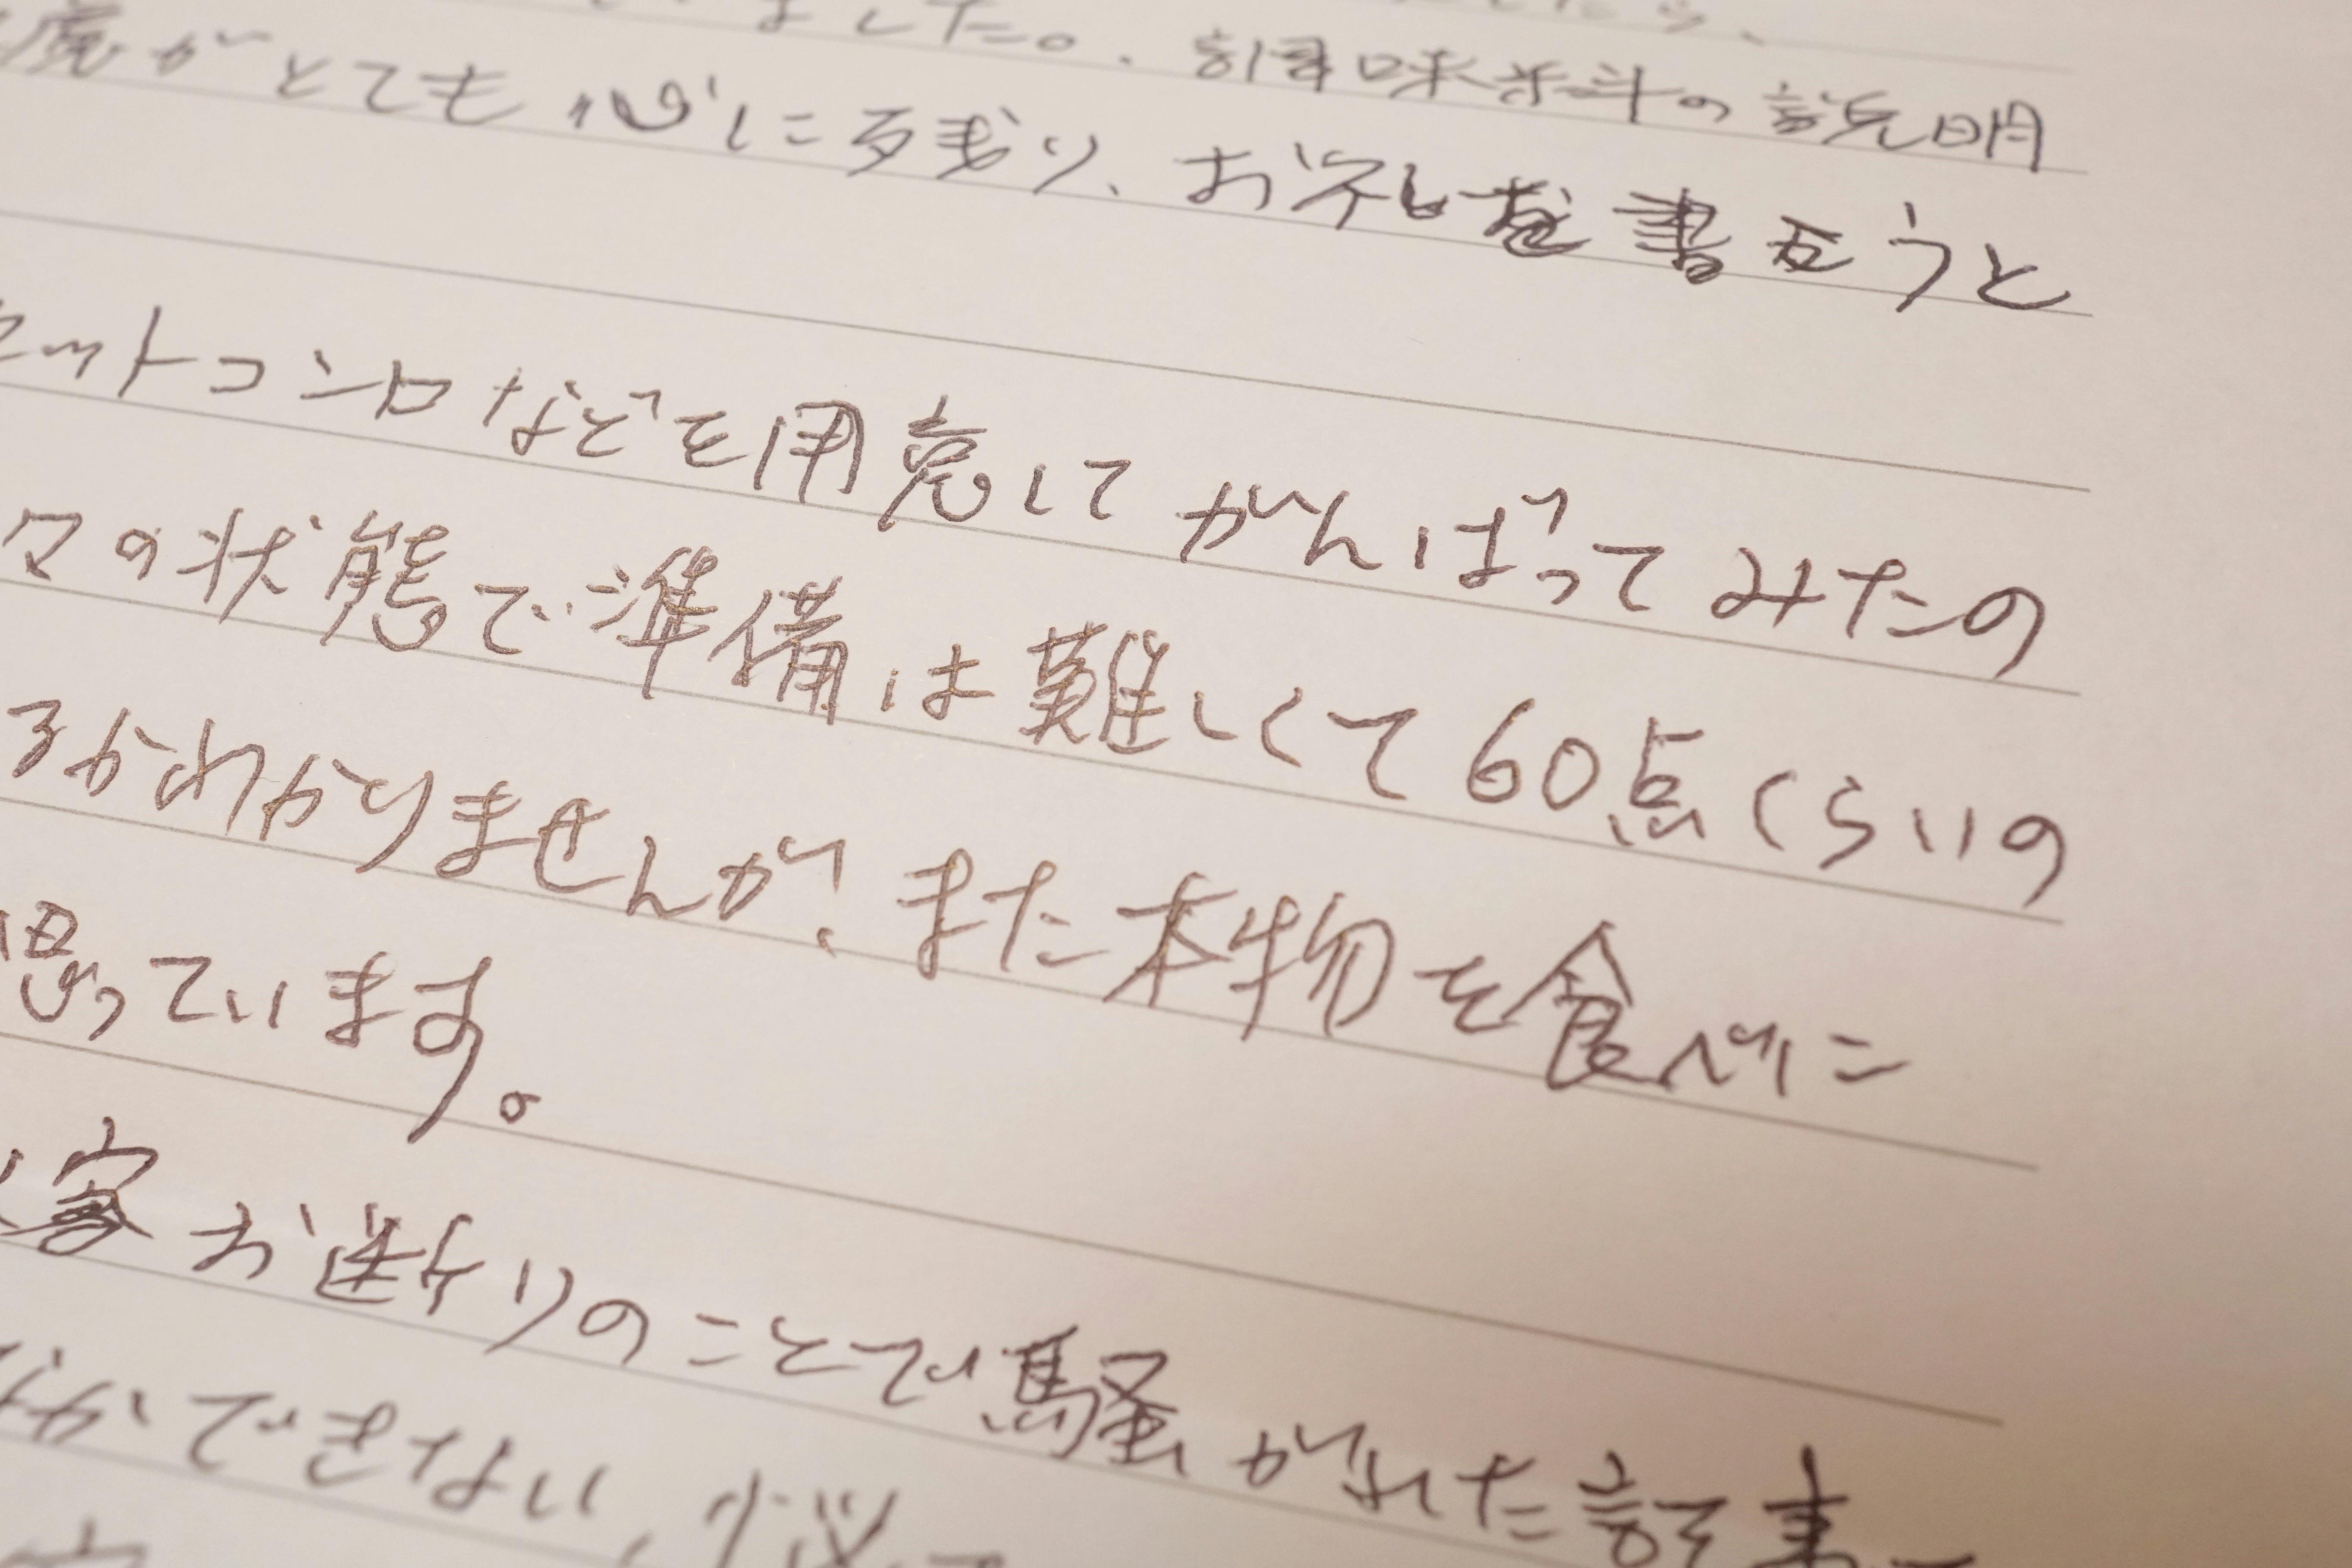 ました。調味料の説明
がとても心に残り、お礼を書こうと
ットコンロなどを用意してがんばってみたの
々の状態で準備は難しくて60点くらいの
るかわかりませんが、また本物を食べに
思っています。
客お断りのことで騒がれた記事
かできない、悩